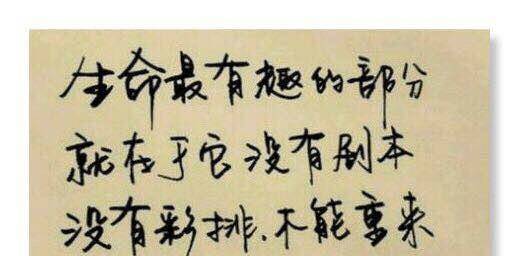 生命最有趣的部分
就在于它没有剧本
没有彩排、不能重来